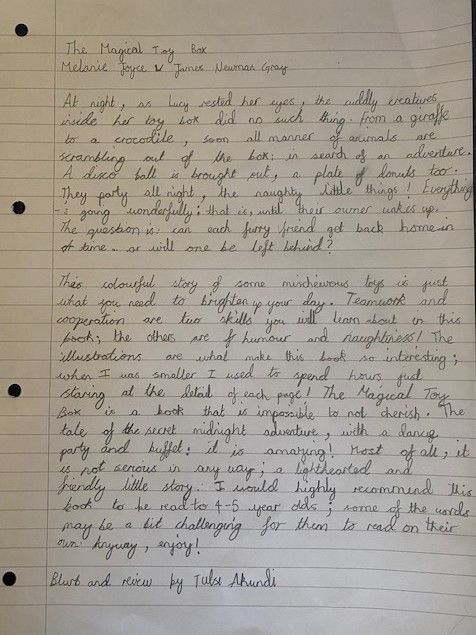 The Magical Toy Box
Melanie Joyce & James Newman Gray
At night, as Lucy rested her eyes, the cuddly creatures
inside her toy box did no such thing. From a giraffe
to a crocodile, soon all manner of animals are
scrambling out of the box; in search of an adventure.
A disco ball is brought out, a plate of donuts too.
They party all night, the naughty little things! Everything
is going wonderfully; that is, until their owner wakes up.
The question is: can each furry friend get back home in
time.. or will one be left behind?
This colourful story of some mischievous toys is just
what you need to brighten up your day. Teamwork and
cooperation are two skills you will learn about in this
book; the others are of humour and naughtiness! The
illustrations are what make this book so interesting;
when I was smaller I used to spend hours just
staring at the detail of each page! The Magical Toy
Box is a book that is impossible to not cherish. The
tale of the secret midnight adventure, with a dancing
party and buffet: it is amazing! Most of all, it
is not serious in any way; a lighthearted and
friendly little story. I would highly recommend this
book to be read to 4-5 year olds; some of the words
may be a bit challenging for them to read on their
own. Anyway, enjoy!
Blurb and review by Tulsi Akundi